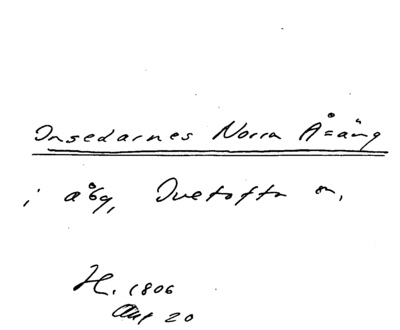 Onsedarnes Norra Å=äng
i åbg, Tvetofta sn,
H. 1806
Aug 20